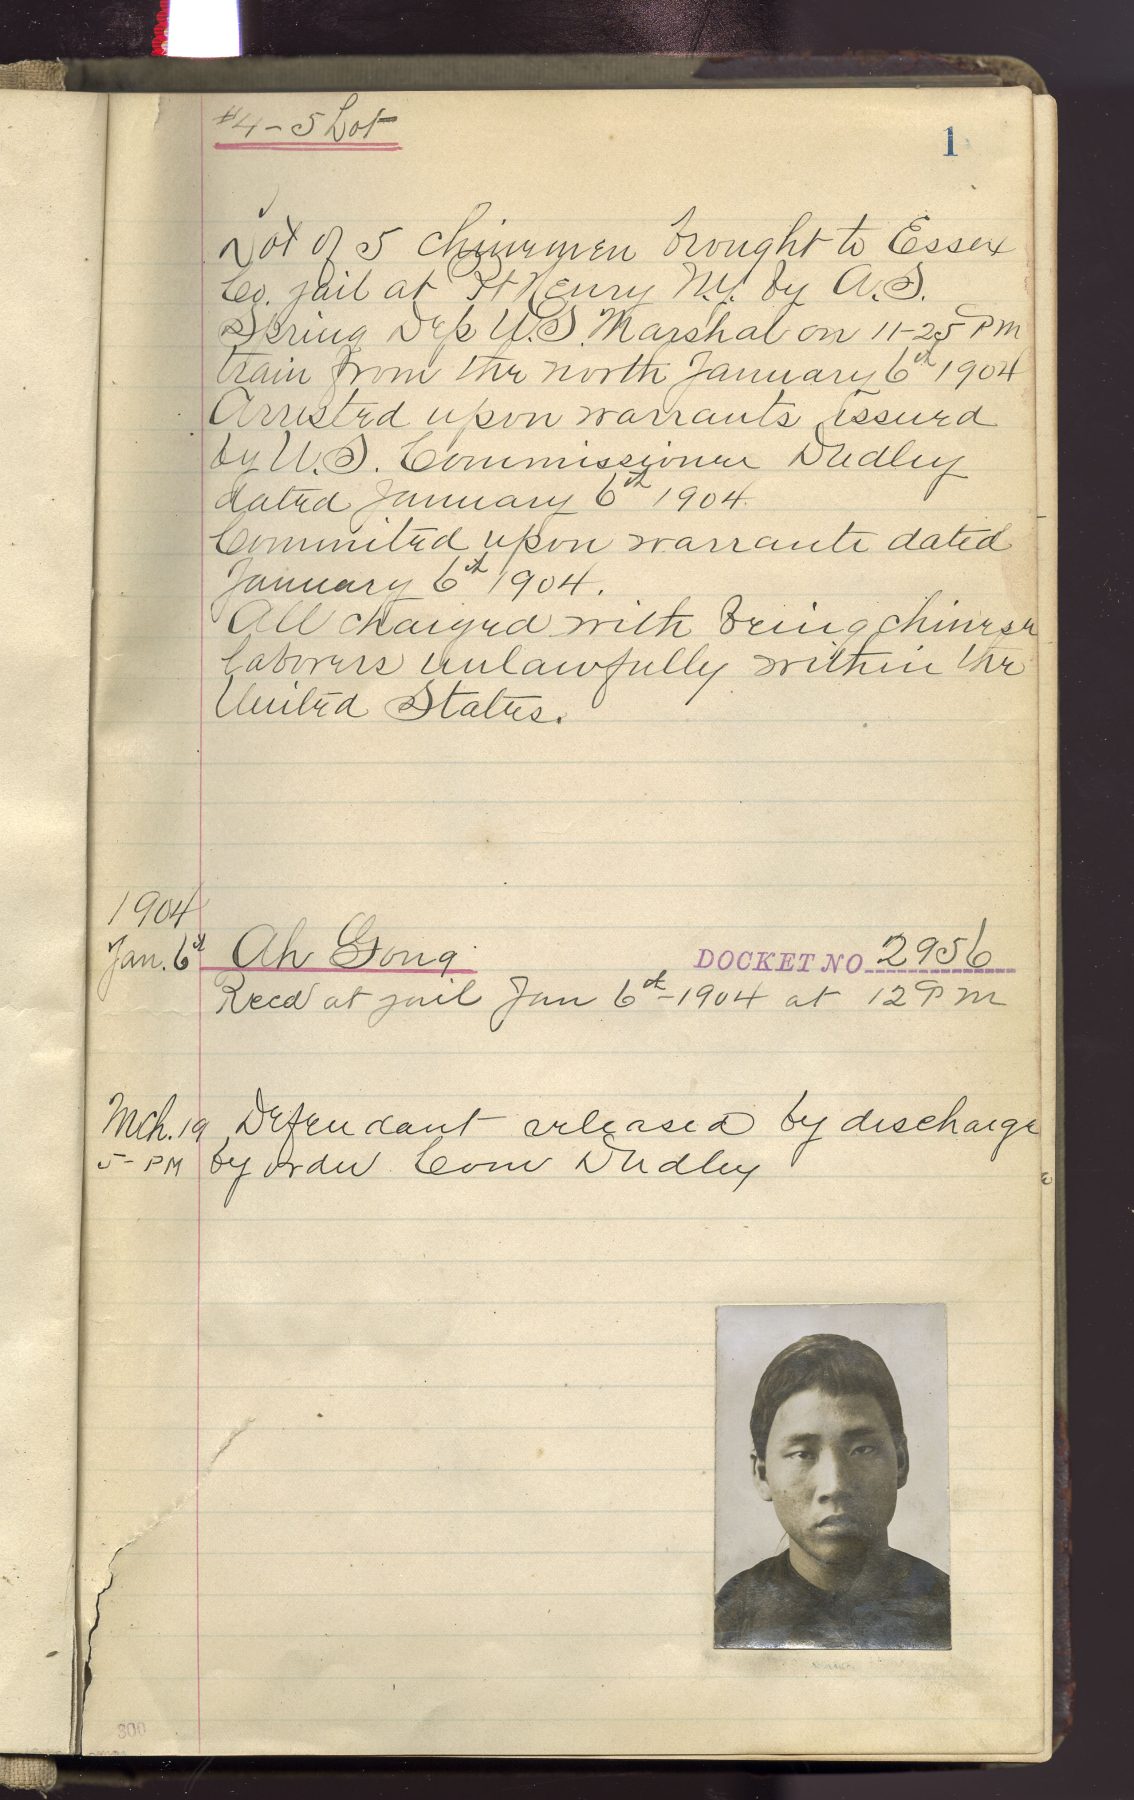 #4-5 Lot
1
Lot of 5 Chinemen brought to Essex
Co. jail at Pt Henry N.Y. by A.S.
Spring Dep U.S. Marshal on 11-25 PM
train from the north January 6th 1904
Arrested upon warrants issued
by U.S. Commissioner Dudley
dated January 6th 1904.
Commited upon warrants dated
January 6th 1904.
All charged with being chinese
laborers unlawfully within the
United States.
1904
Jan. 6th Ah Gong DOCKET NO 2956
Recd at jail Jan 6th-1904 at 12 PM
Mch. 19 Defendant released by discharge
5- PM by order Com Dudley
300